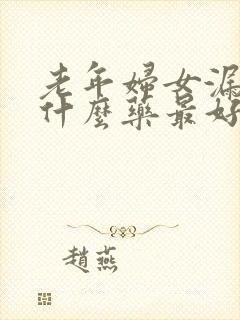 老年婦女漏
什麼藥最好
趙燕